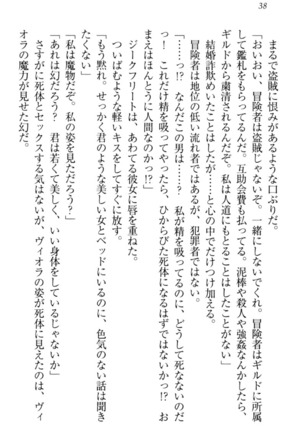 38
まるで盗賊に恨みがあるような口ぶりだ。
「おいおい、冒険者は盗賊じゃないぞ。一緒にしないでくれ。冒険者はギルドに所属
して鑑札をもらってるんだ。互助会費も払ってる。泥棒や殺人や強姦なんかしたら、
ギルドから粛清されるんだぞ。私は人道にもとることはしたことはない」
結婚詐欺めいたことはしたが……と心の中でだけつけ加える。
冒険者は地位の低い流れ者ではあるが、犯罪者ではない。
「……っ!?　なんだこの男は……？　私が精を吸ってるのに、どうして死なないの
っ！　これだけ精を吸ってやったら、ひからびた死体になるはずではないかっ!?　お
まえはほんとうに人間なのかっ!?」
ジークフリートは、あわてる彼女に唇を重ねた。
ついばむような軽いキスをしてすぐに放す。
「もう黙れ。せっかく君のような美しい女とベッドにいるのに、色気のない話は聞き
たくない」
「私は魔物だぞ。私の姿を見ただろう？」
「あれは幻だろう？　君は若くて美しく、いい身体をしているじゃないか」
さすがに死体とセックスする気はないが、ヴィオラの姿が死体に見えたのは、ヴィ
オラの魔力が見せた幻だ。